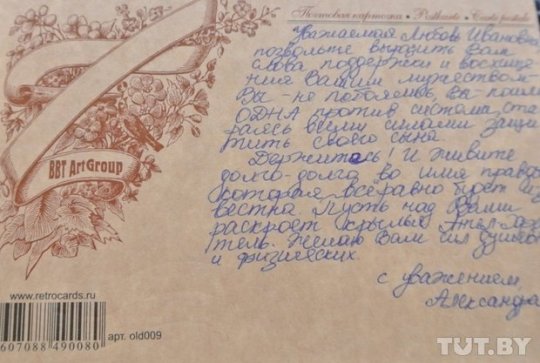 Почтовая карточка • Postcarte • Carte postale
Уважаемая Любовь Ивановна,
позвольте выразить Вам
слова поддержки и восхище
ния Вашим мужеством.
Вы - не побоялись, Вы - пошли
ОДНА против системы ста
раясь всеми силами защи
тить своего сына.
Держитесь! И живите
долго-долго во имя правды
которая всё равно будет из
вестна. Пусть над Вами
раскроет крылья Ангел-Хра
тель. Желаю Вам сил душев
и физических.
с уважением,
Александра
BBT ArtGroup
www.retrocards.ru
607088 490080
арт. old009
TUT.BY